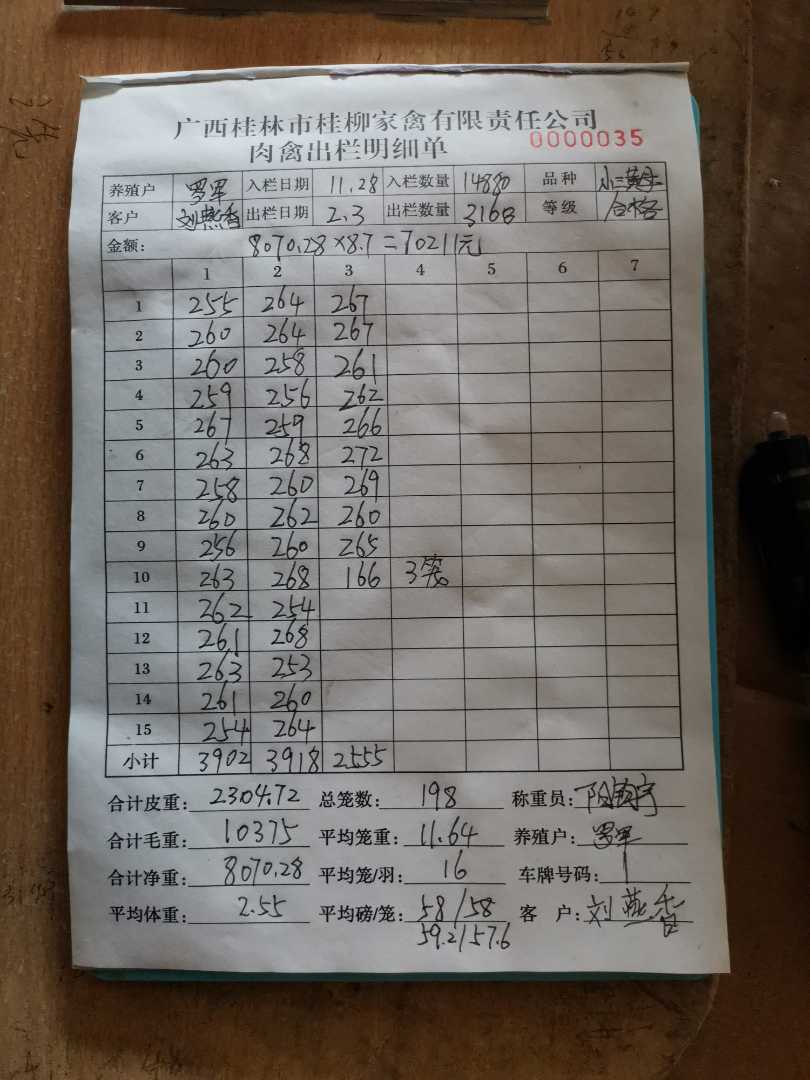 广西桂林市桂柳家禽有限责任公司
肉禽出栏明细单 0000035
养殖户 罗军 入栏日期 11.28 入栏数量 14880 品种 小三黄
客户 刘燕香 出栏日期 2.3 出栏数量 3168 等级 合格
金额: 8070.28×8.7=70211元
1 2 3 4 5 6 7
1 255 264 267
2 260 264 267
3 260 258 261
4 259 256 262
5 267 259 266
6 263 268 272
7 258 260 269
8 260 262 260
9 256 260 265
10 263 268 166 3笼
11 262 254
12 261 268
13 263 253
14 261 260
15 254 264
小计 3902 3918 2555
合计皮重: 2304.72 总笼数: 198 称重员:
合计毛重: 10375 平均笼重: 11.64 养殖户: 罗军
合计净重: 8070.28 平均笼/羽: 16 车牌号码: 1
平均体重: 2.55 平均磅/笼: 58/58 客 户: 刘燕香
59.2/57.6